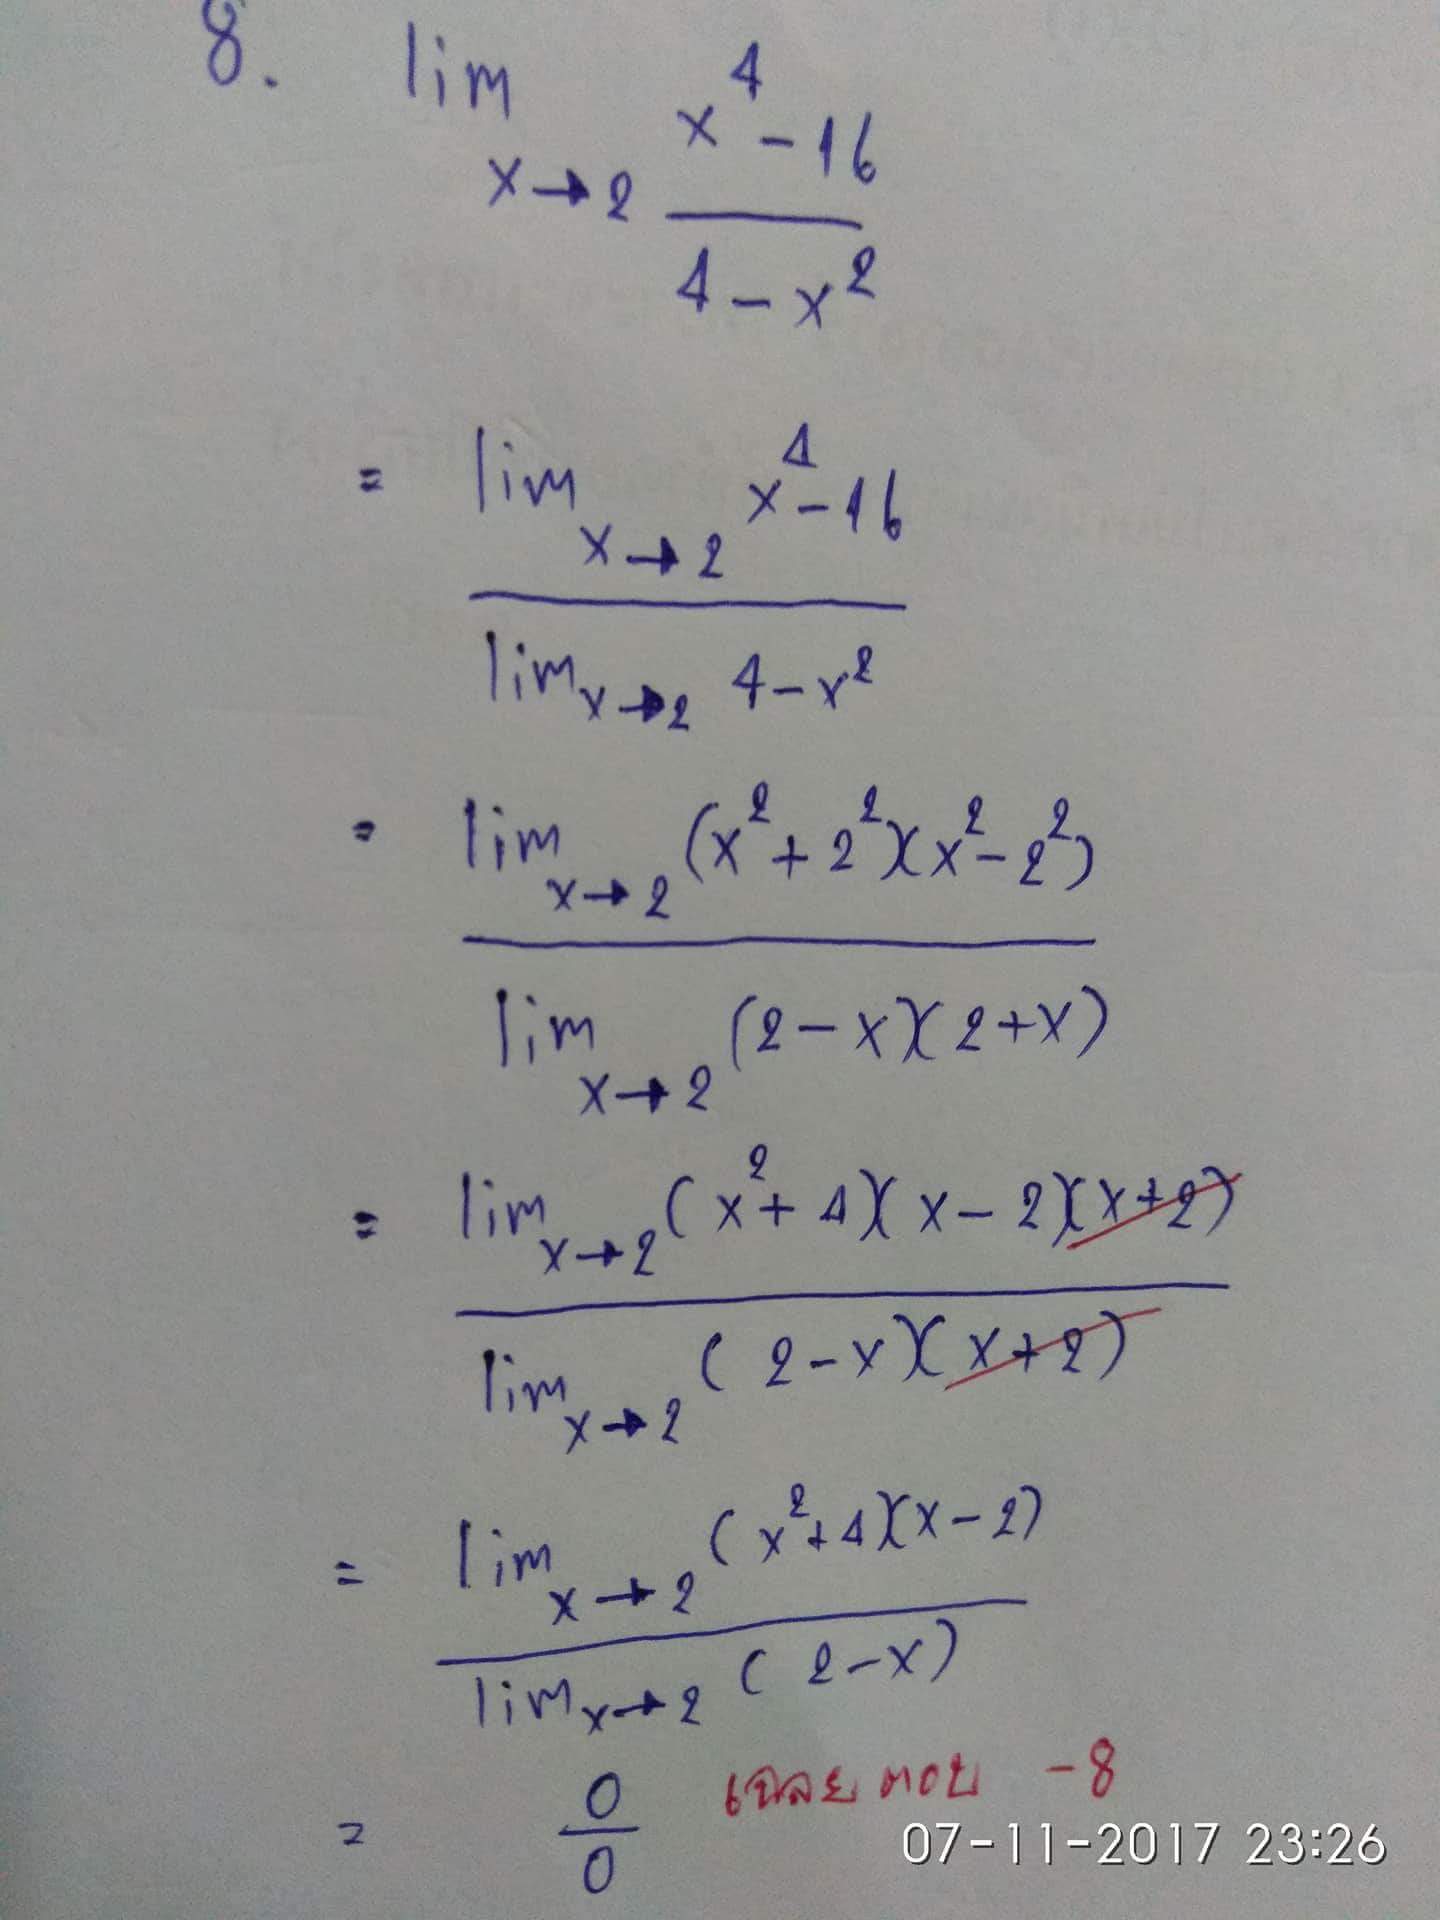 8. lim x→2 x⁴-16
4-x²
= lim x→2 x⁴-16
lim x→2 4-x²
= lim x→2 (x²+2²)(x²-2²)
lim x→2 (2-x)(2+x)
= lim x→2 (x²+4)(x-2)(x+2)
lim x→2 (2-x)(x+2)
= lim x→2 (x²+4)(x-2)
lim x→2 (2-x)
= 0 เฉลย ตอบ -8
0
07-11-2017 23:26